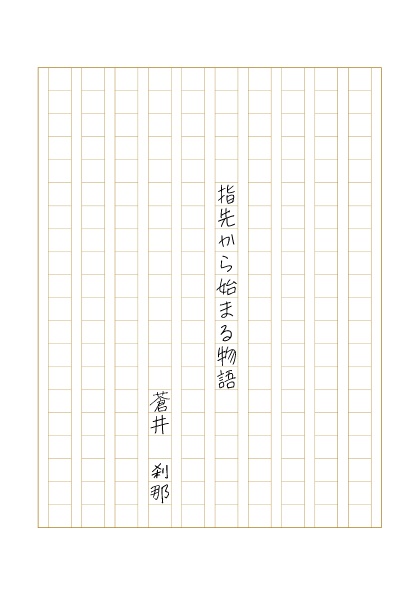 指先から始まる物語
蒼井　刹那